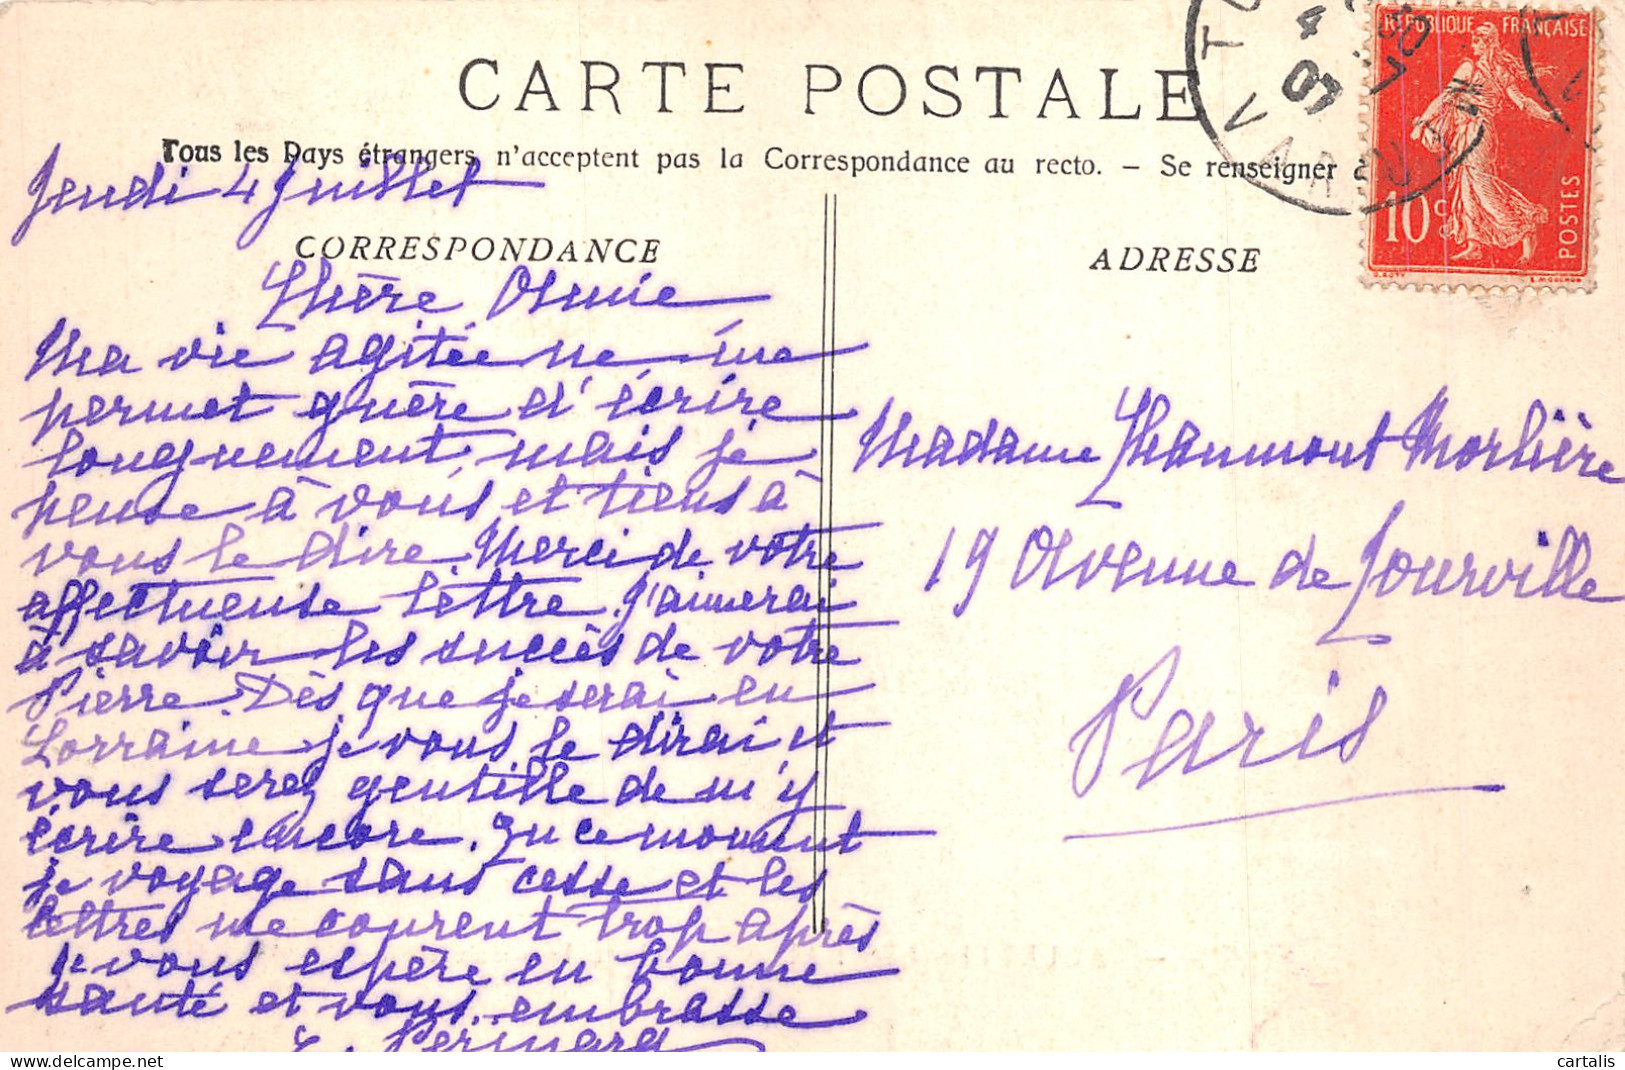 CARTE POSTALE
Tous les Pays étrangers n'acceptent pas la Correspondance au recto. – Se renseigner
RÉPUBLIQUE FRANÇAISE
10c
POSTES
4
07
VAR
Jeudi 4 Juillet
CORRESPONDANCE
ADRESSE
Chère Amie
Ma vie agitée ne me
permet guère d'écrire
longuement, mais je
pense à vous et tiens à
vous le dire. Merci de votre
affectueuse lettre. J'aimerai
à savoir les succès de votre
Pierre. Dès que je serai en
Lorraine je vous le dirai et
vous serez gentille de m'y
écrire encore. En ce moment
je voyage sans cesse et les
lettres me courent trop après
je vous espère en bonne
santé et vous embrasse
Madame Chaumont Morlière
19 Avenue de Tourville
Paris
cartalis